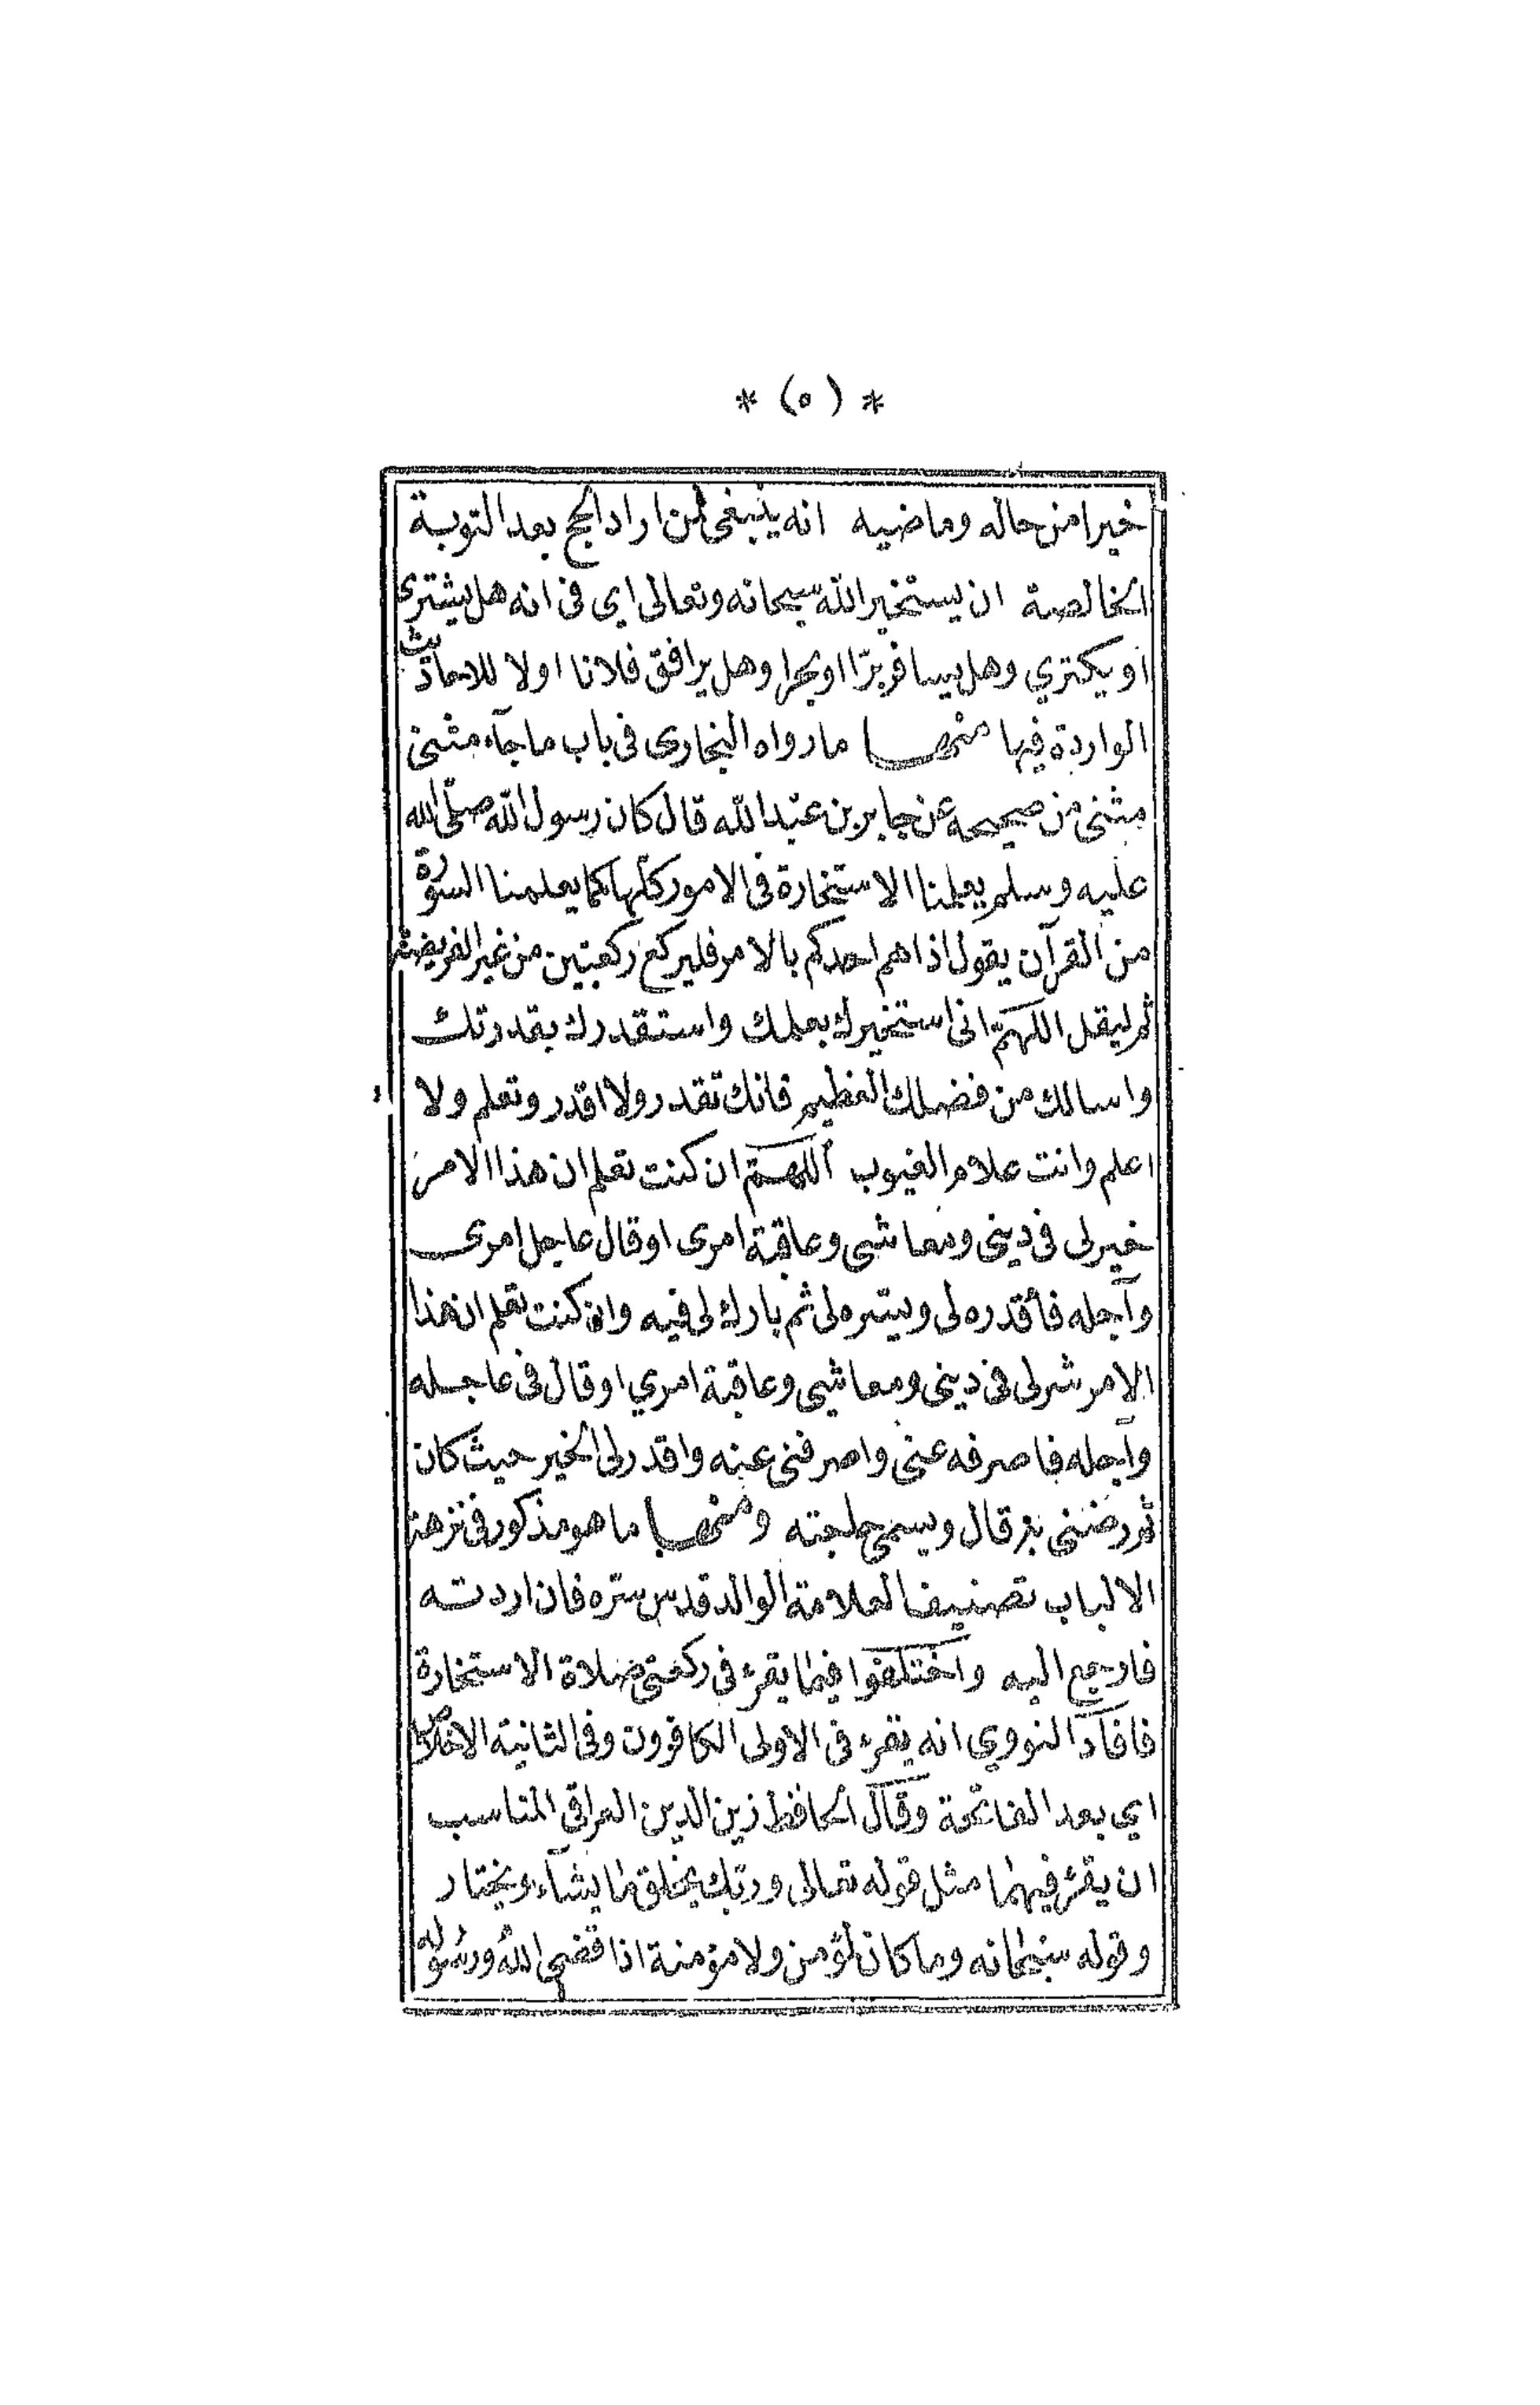 * (٥) *
خيرا من حاله وماضيه انه ينبغى لمن اراد الحج بعد التوبة
الخالصة ان يستخير الله سبحانه وتعالى اي فى انه هل يشترى
او يكتري وهل يسافر برّا او بحرا وهل يرافق فلانا اولا للاحاديث
الواردة فيها منها ما رواه البخارى فى باب ما جآء مثنى
مثنى من صحيحه عن جابر بن عبد الله قال كان رسول الله صلّى الله
عليه وسلم يعلمنا الاستخارة فى الامور كلّها كما يعلمنا السورة
من القرآن يقول اذا هم احدكم بالامر فليركع ركعتين من غير الفريضة
ثم ليقل اللهمّ انى استخيرك بعلمك واستقدرك بقدرتك
واسالك من فضلك العظيم فانك تقدر ولا اقدر وتعلم ولا
اعلم وانت علام الغيوب اللهمّ ان كنت تعلم ان هذا الامر
خير لى فى دينى ومعاشى وعاقبة امرى او قال عاجل امرى
وآجله فأقدره لى ويسّره لى ثم بارك لى فيه وان كنت تعلم ان هذا
الامر شر لى فى دينى ومعاشى وعاقبة امري او قال فى عاجله
وآجله فاصرفه عنى واصرفنى عنه واقدر لى الخير حيث كان
ثم رضنى به قال ويسمى حاجته ومنها ما هو مذكور فى نزهة
الالباب تصنيف العلامة الوالد قدس سرّه فان اردته
فارجع اليه واختلفوا فيما يقرء فى ركعتى صلاة الاستخارة
فافاد النووي انه يقرء فى الاولى الكافرون وفى الثانية الاخلاص
اي بعد الفاتحة وقال الحافظ زين الدين العراقى المناسب
ان يقرء فيهما مثل قوله تعالى وربك يخلق ما يشآء ويختار
وقوله سبحانه وما كان لمؤمن ولا مؤمنة اذا قضى الله ورسوله